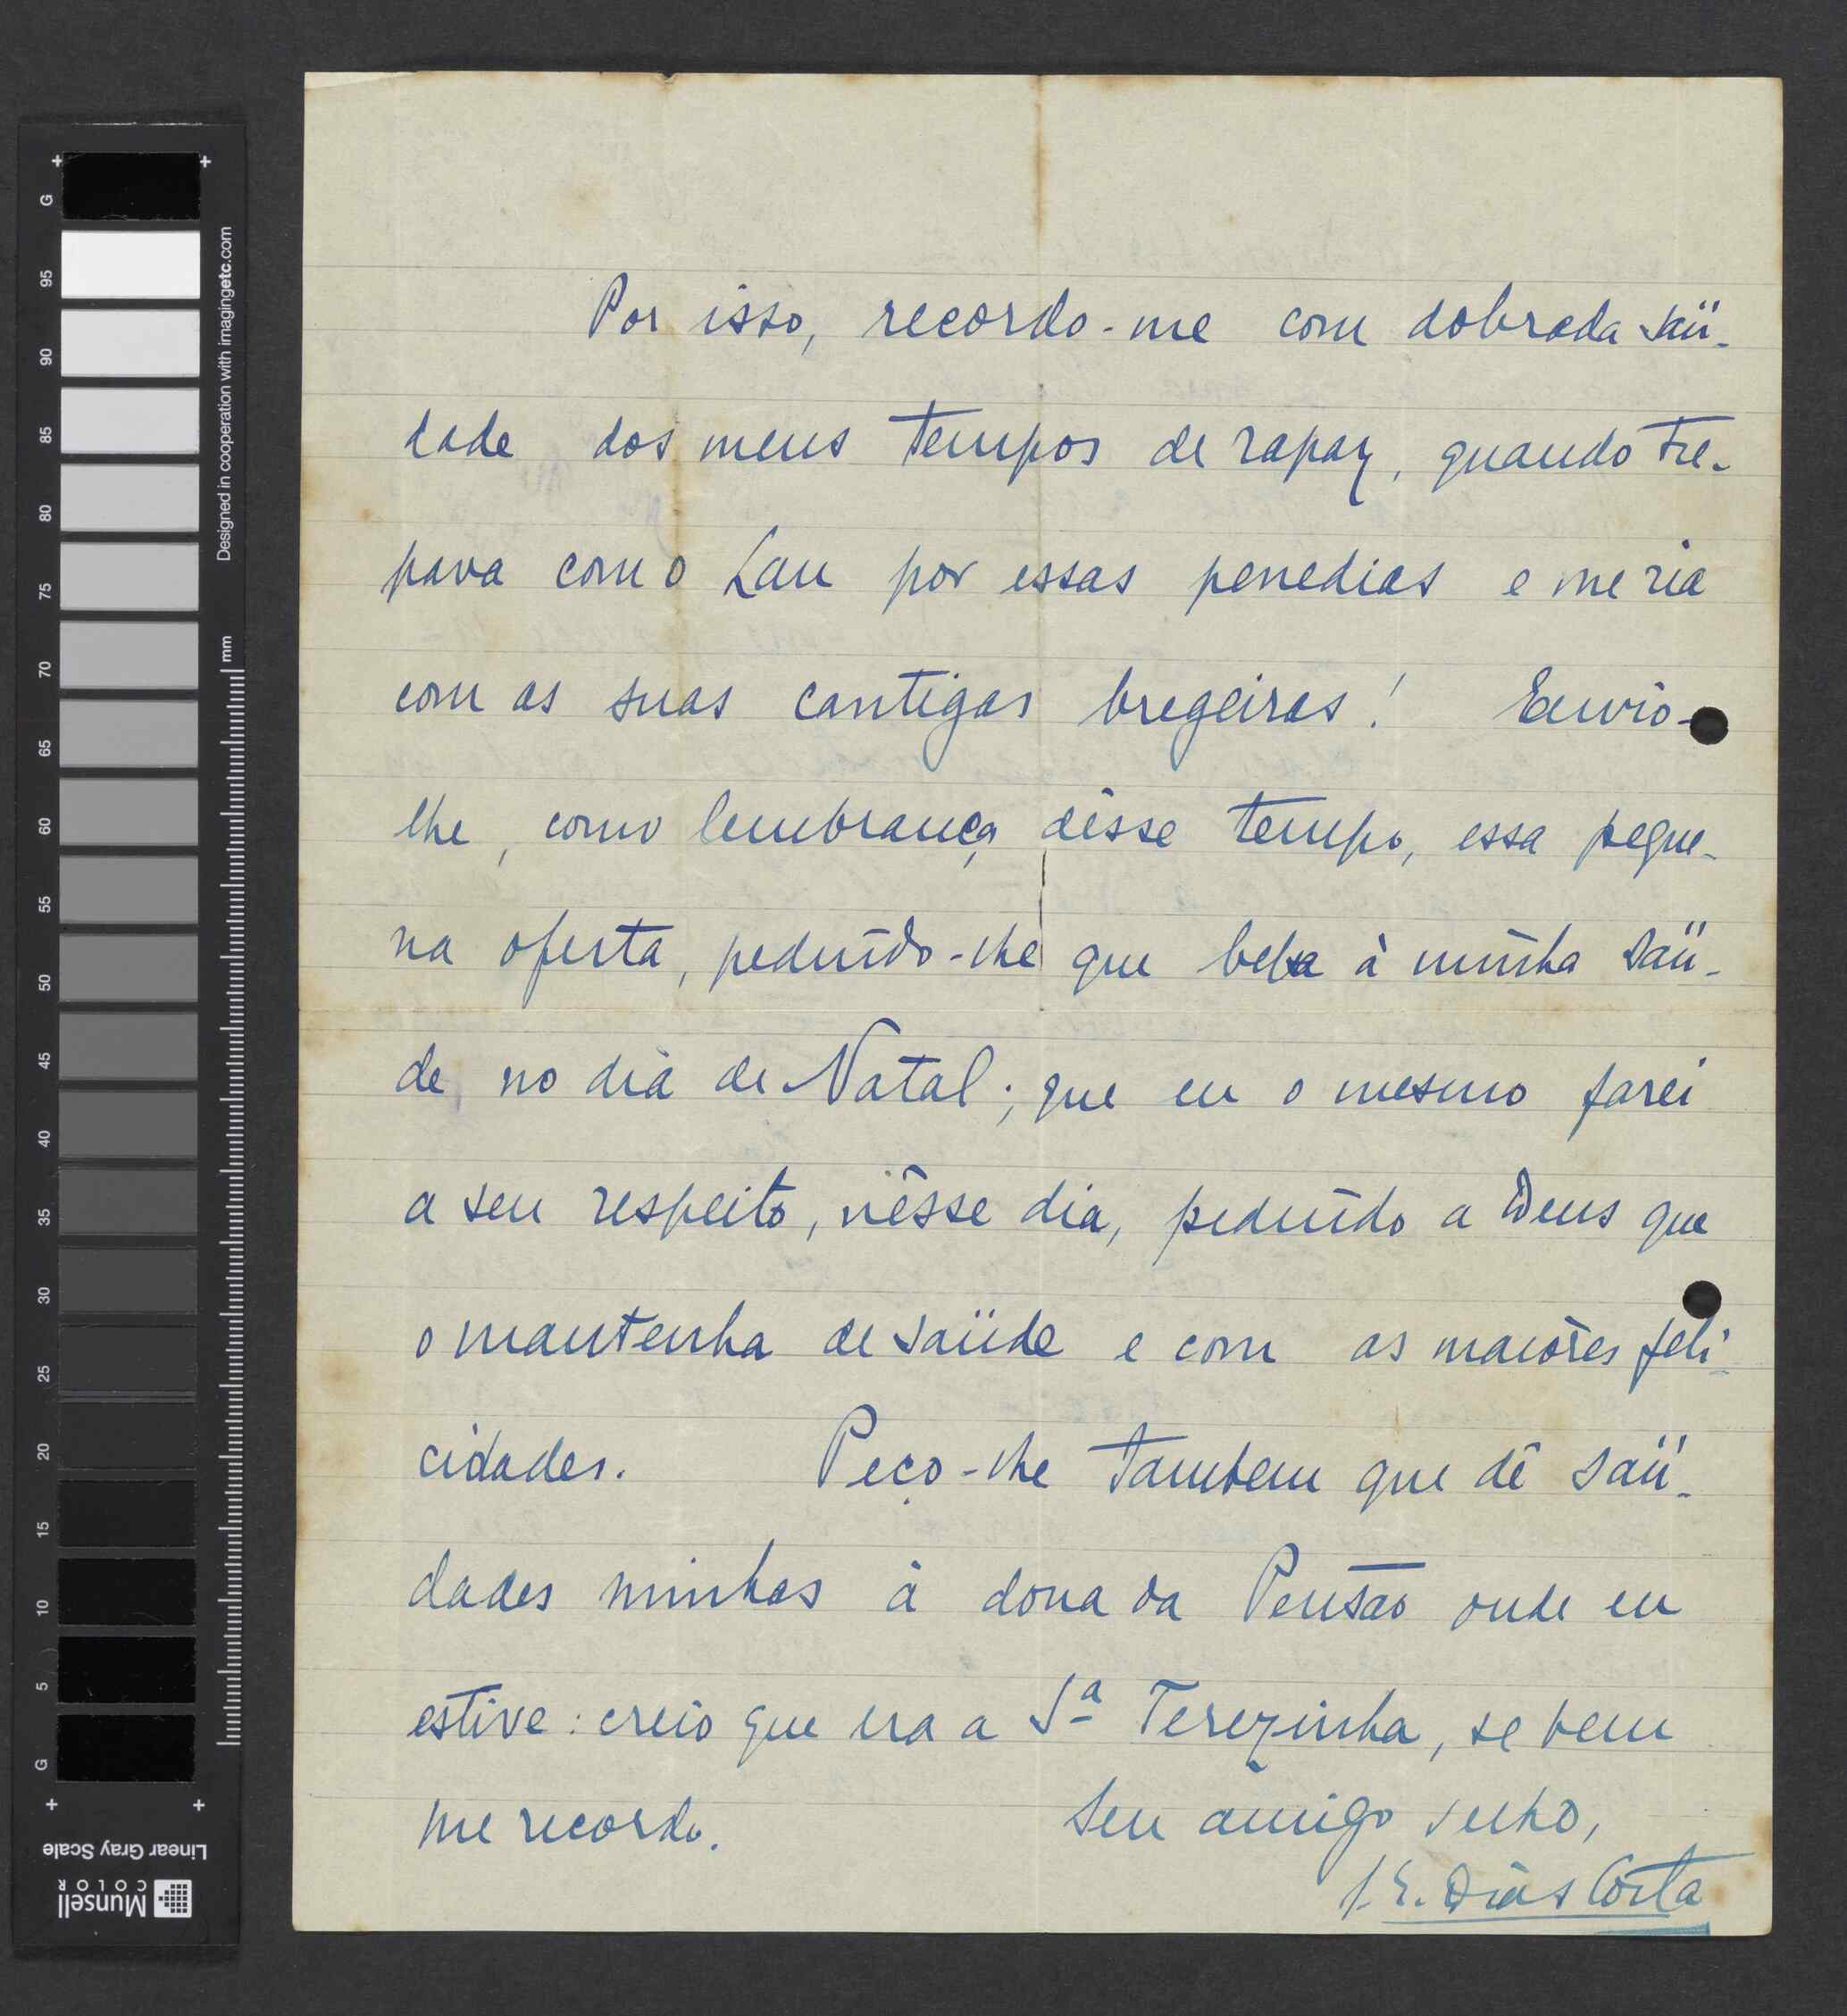 Por isso, recordo-me com dobrada saü-
dade dos meus tempos de rapaz, quando tre-
pava com o Lau por essas penedias e me ria
com as suas cantigas bregeiras! Envio-
lhe, como lembrança dêsse tempo, essa peque-
na oferta, pedindo-lhe que beba à minha saü-
de, no dia de Natal; que eu o mesmo farei
a seu respeito, nêsse dia, pedindo a Deus que
o mantenha de saüde e com as maiores feli-
cidades. Peço-lhe tambem que dê saü-
dades minhas à dona da Pensão onde eu
estive: creio que era a Sª Terezinha, se bem
me recordo. Seu amigo velho,
J. E. Dias Costa
G
95
90
85
80
75
70
65
60
55
50
45
40
35
30
25
20
15
10
5
G
Designed in cooperation with imagingetc.com
mm
Linear Gray Scale
Munsell
COLOR